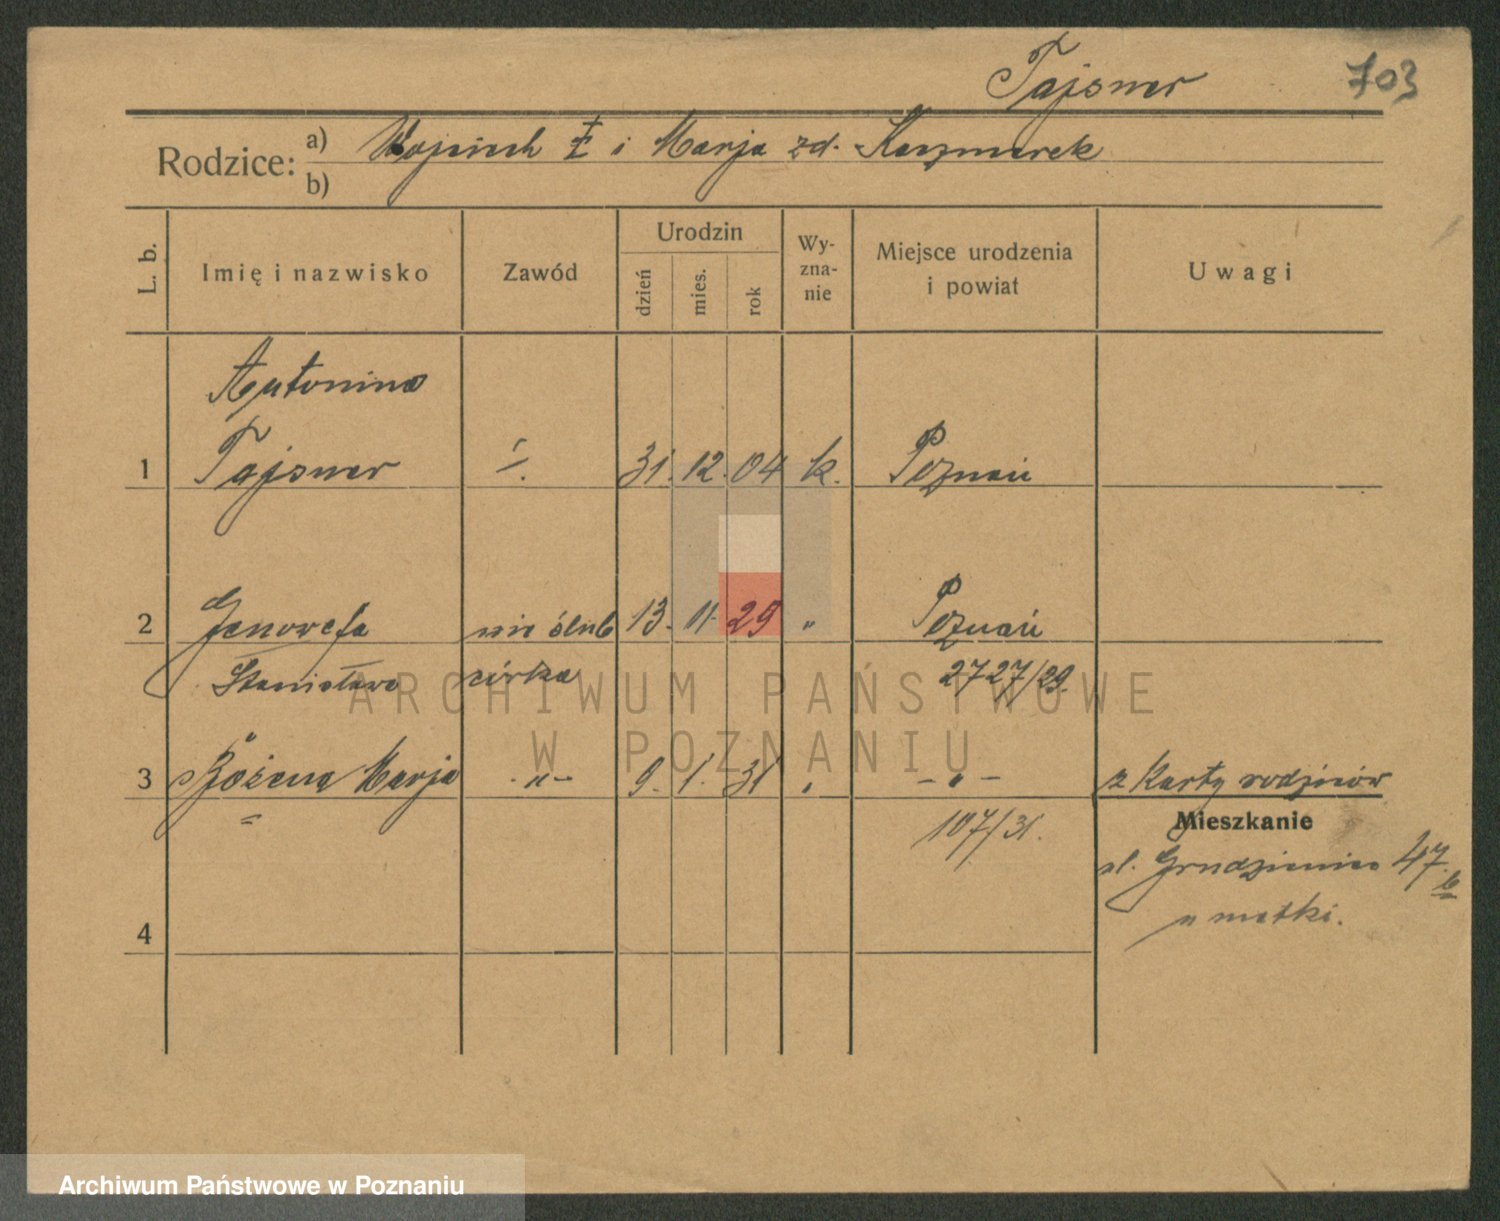 Tajsner 703
Rodzice: a) Wojciech ‡ i Marja zd. Kaczmarek
b)
L. b. Imię i nazwisko Zawód Urodzin dzień mies. rok Wy-zna-nie Miejsce urodzenia i powiat Uwagi
Antonina
1 Tajsner /. 31. 12. 04 k. Poznań
2 Genowefa nie ślub 13. 11. 29 " Poznań
Stanisława córka 2727/29.
ARCHIWUM PAŃSTWOWE
W POZNANIU
3 Bożena Marja -"- 9. 1. 31 " -"-
z Karty rodziców
107/31.
Mieszkanie
ul. Grudzieniec 47.
u matki.
4
Archiwum Państwowe w Poznaniu